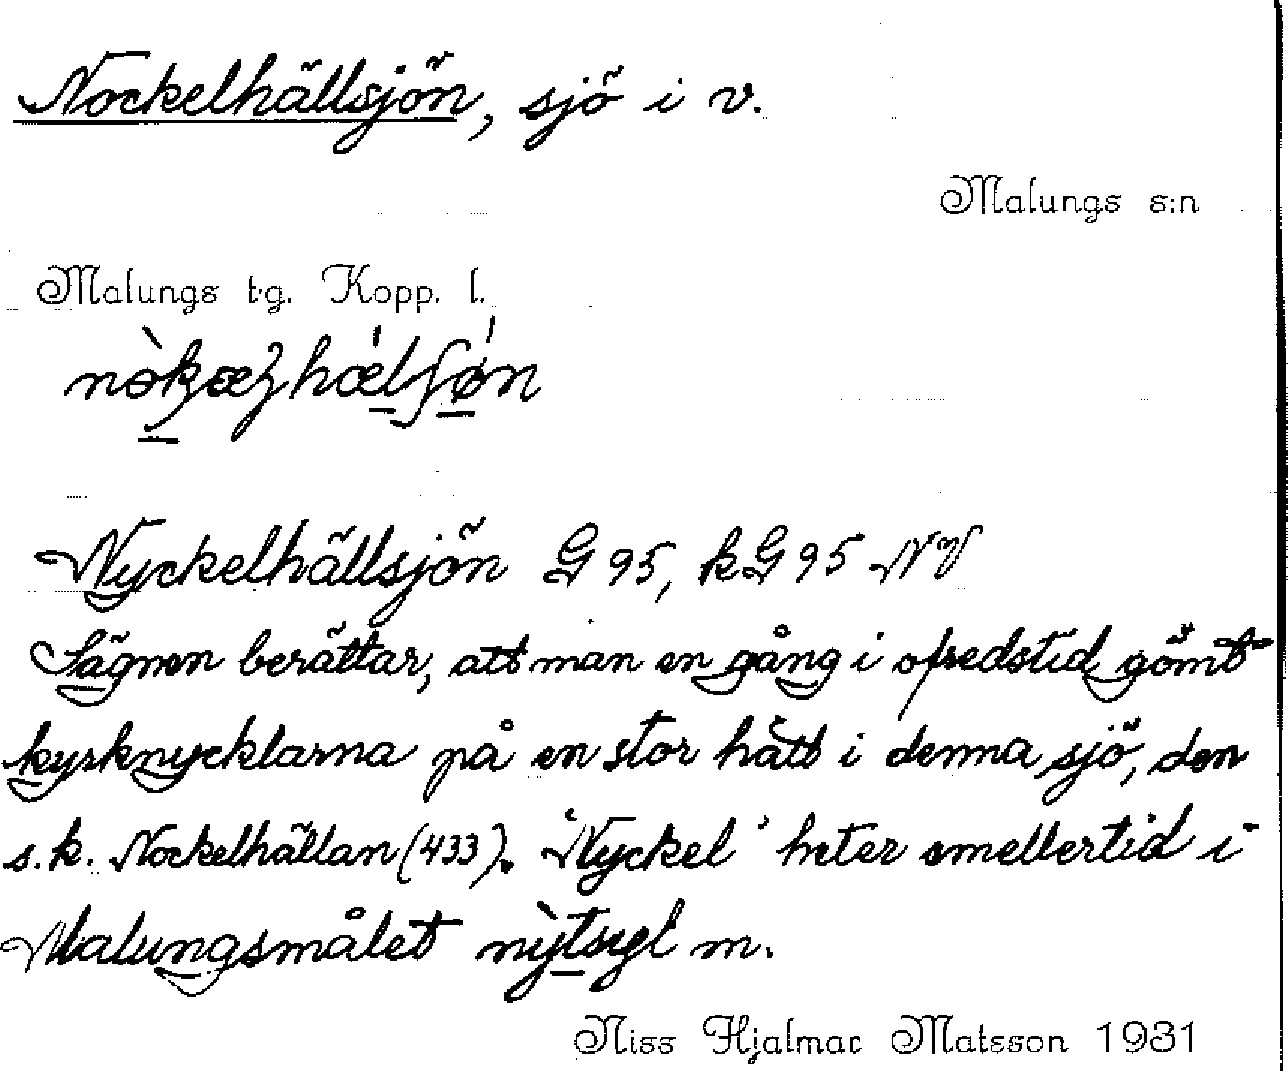 Nockelhällsjön, sjö i v.
Malungs s:n
Malungs t.g. Kopp. l.
Nyckelhällsjön G 95, kG 95 NV
Sägnen berättar, att man en gång i ofredstid gömt
kyrknycklarna på en stor häll i denna sjö, den
s.k. Nockelhällan (433). 'Nyckel' heter emellertid i
Malungsmålet m.
Niss Hjalmar Matsson 1931